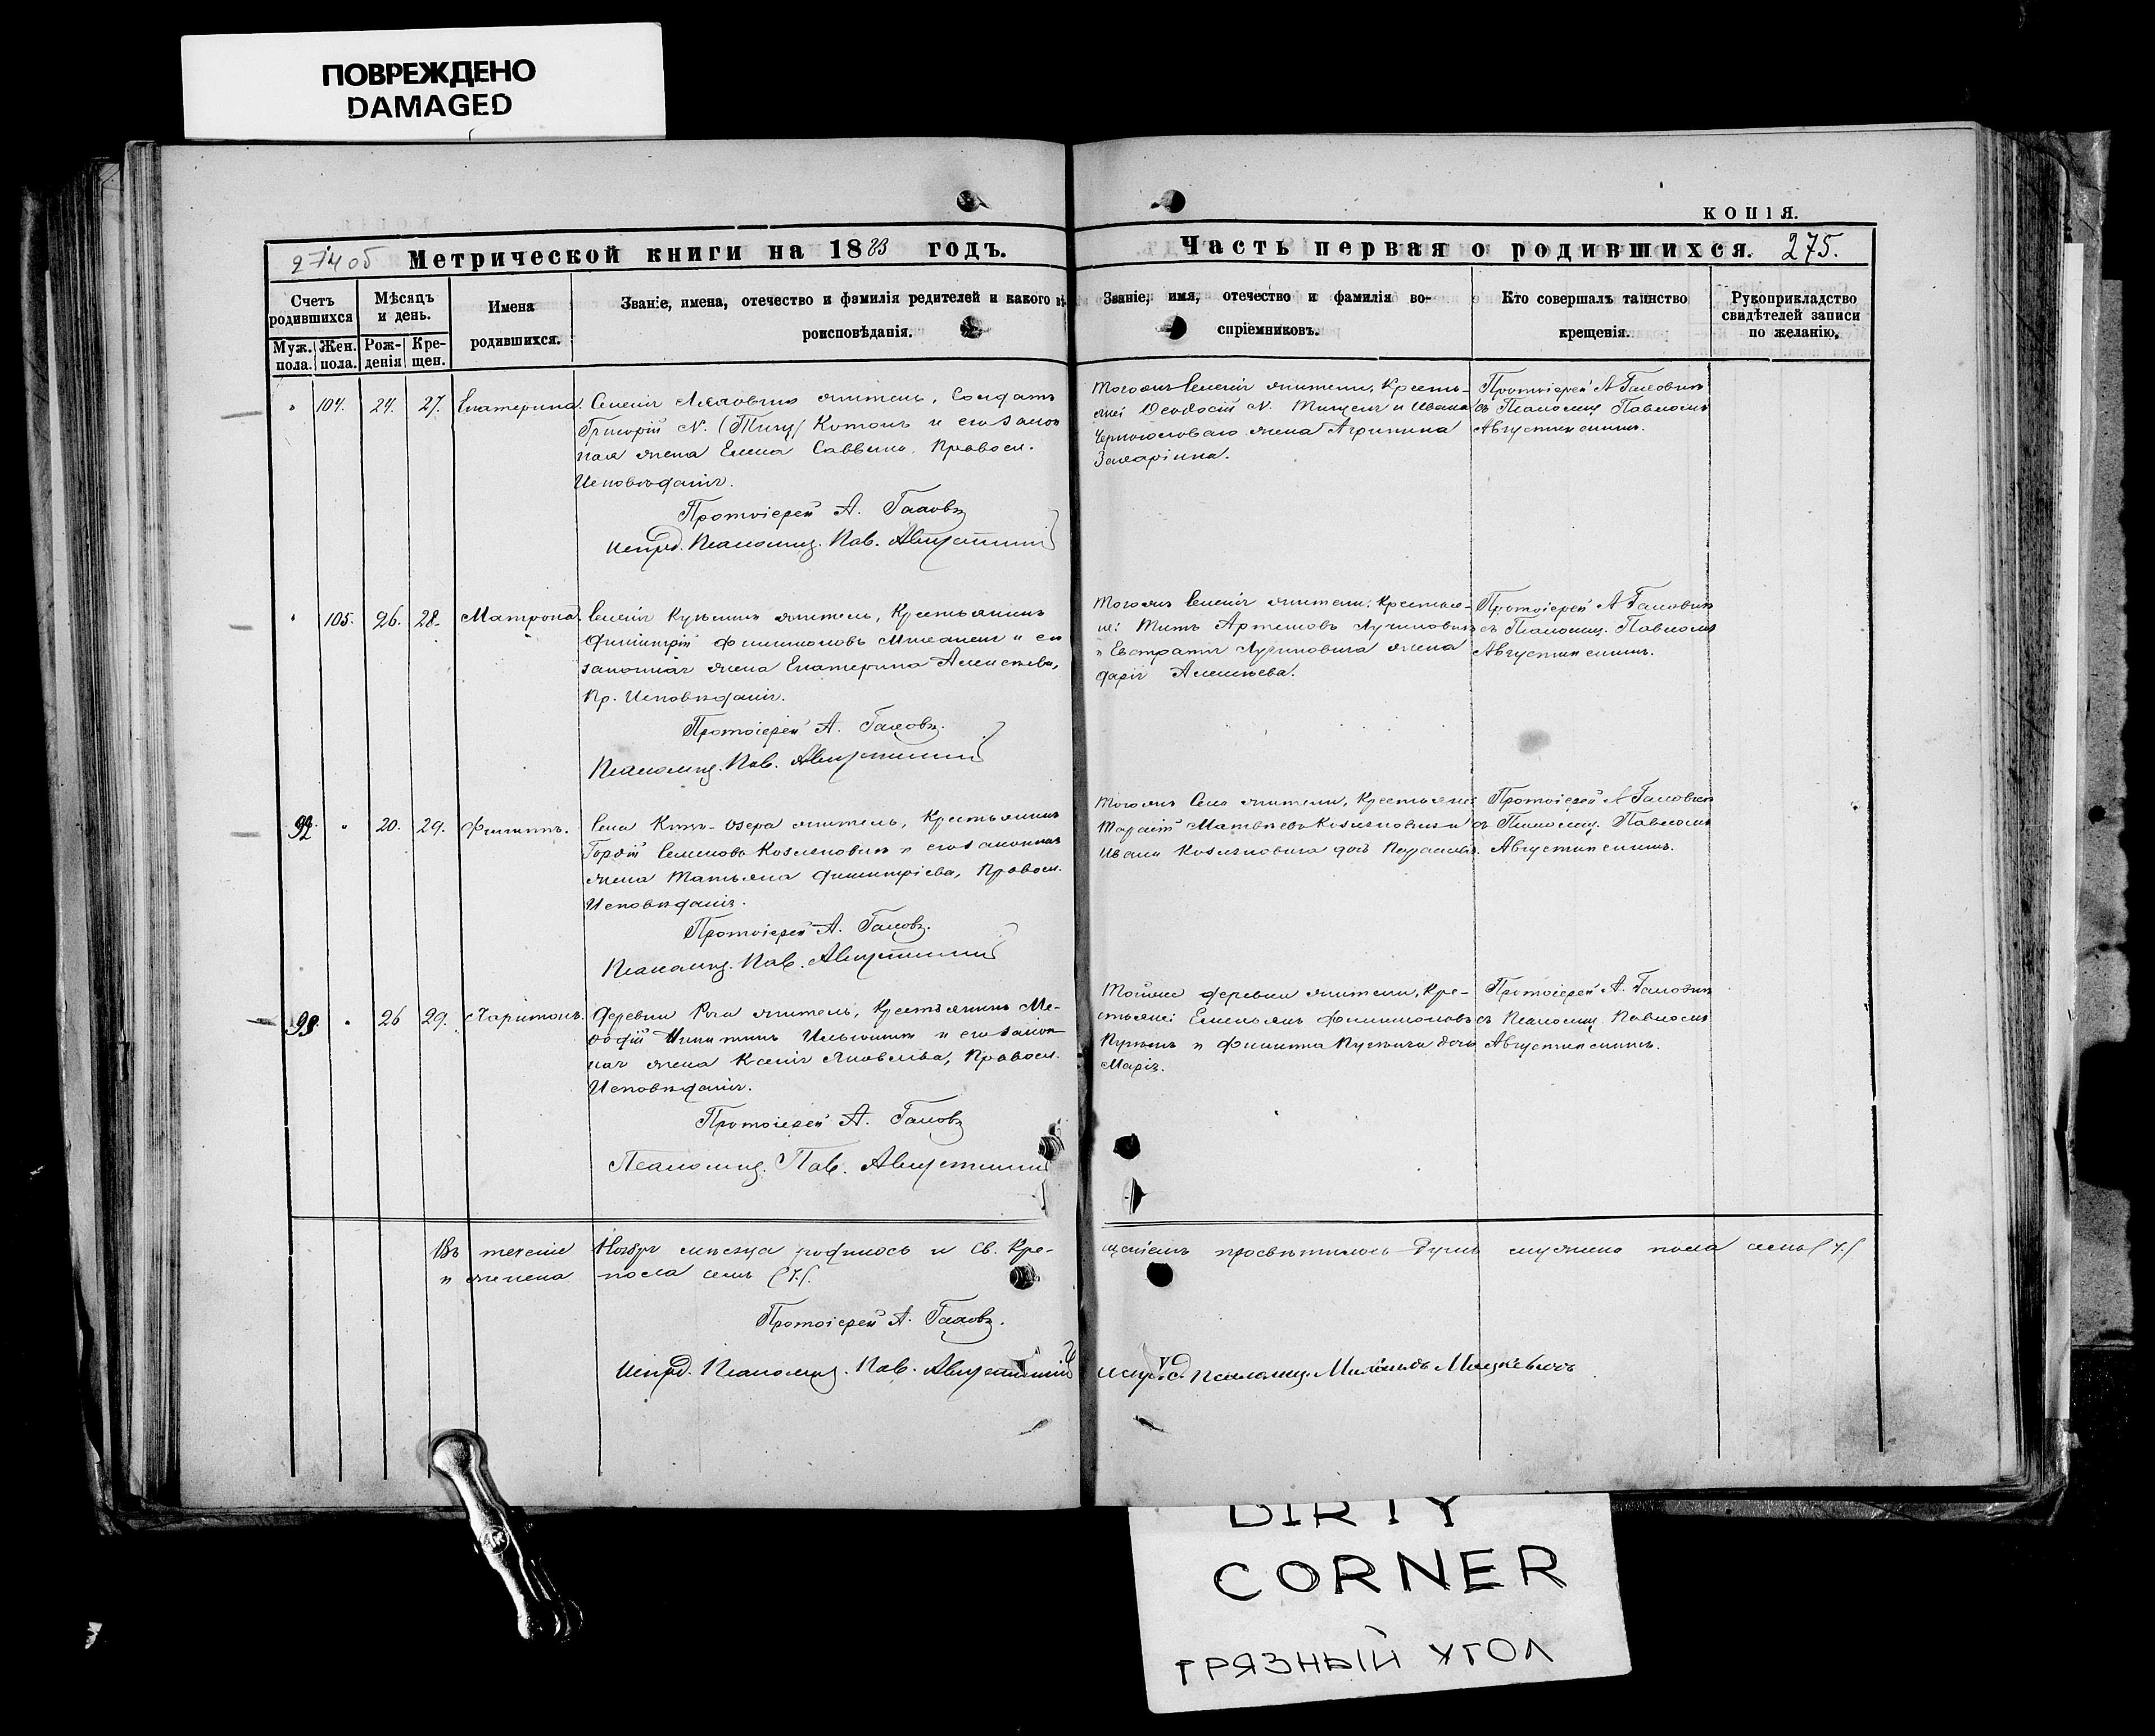 ПОВРЕЖДЕНО
DAMAGED
КОПІЯ.
274 об
Метрической книги на 1883 годъ.
Часть первая о родившихся. 275.
Счетъ родившихся
Мѣсяцъ и день.
Имена родившихся.
Званіе, имена, отечество и фамилія родителей и какого вѣ-
роисповѣданія.
Званіе, имя, отечество и фамилія во-
спріемниковъ.
Кто совершалъ таинство
крещенія.
Рукоприкладство
свидѣтелей записи
по желанію.
Муж. пола.
Жен. пола.
Рож-
денія
Кре-
щен.
" 104. 24. 27. Екатерина.
житель, Солдатъ
Григорій N. Котокъ и его закон
ная жена Елена Саввина, Правосл.
Исповѣданія.
Протоіерей А. Галовъ
Испр.д. Псаломщ. Пав. Августинскій
Того жъ селенія жители, Кресть-
яне: Ѳеодосій N. и Ивана
жена
Захаріина.
Протоіерей А Галовъ
съ Псаломщ Павломъ
Августинскимъ.
" 105. 26. 28. Матрона.
Селенія житель, Крестьянинъ
Димитрій Филимоновъ и его
законная жена Екатерина Алексѣева,
Пр. Исповѣданія.
Протоіерей А. Галовъ.
Псаломщ. Пав. Августинскій
Того жъ селенія жители, Крестья-
не: Титъ Артемовъ
и жена
Дарія Алексѣева.
Протоіерей А Галовъ
съ Псаломщ. Павломъ
Августинскимъ.
92. " 20. 29. Филиппъ.
Села -Озера житель, Крестьянинъ
Гордій Семеновъ Козляковичъ и его законная
жена Татьяна Димитріева, Правосл.
Исповѣданія.
Протоіерей А. Галовъ.
Псаломщ. Пав. Августинскій
Того жъ Села жители, Крестьяне:
Тарасій Матвѣевъ Козляковичъ и
Ивана Козляковича дочь
Протоіерей А Галовъ
съ Псаломщ. Павломъ
Августинскимъ.
93. " 26 29. Харитонъ.
Деревни житель, Крестьянинъ Ме-
Никитинъ и его закон-
ная жена Ксенія Яковлева, Правосл.
Исповѣданія.
Протоіерей А. Галовъ
Псаломщ. Пав. Августинскій
Той же деревни жители, Кре-
стьяне: Емельянъ Филимоновъ
и Филиппа дочь
Марія.
Протоіерей А. Галовъ
съ Псаломщ Павломъ
Августинскимъ.
Въ теченіе Ноября мѣсяца родилось и Св. Кре- щеніемъ просвѣтилось душъ мужеска пола семь (7.)
и женска пола семь (7.)
Протоіерей А. Галовъ.
Испр.д. Псаломщ. Пав. Августинскій
Испр.д. Псаломщ. Мацкевичъ
DIRTY
CORNER
ГРЯЗНЫЙ УГОЛ